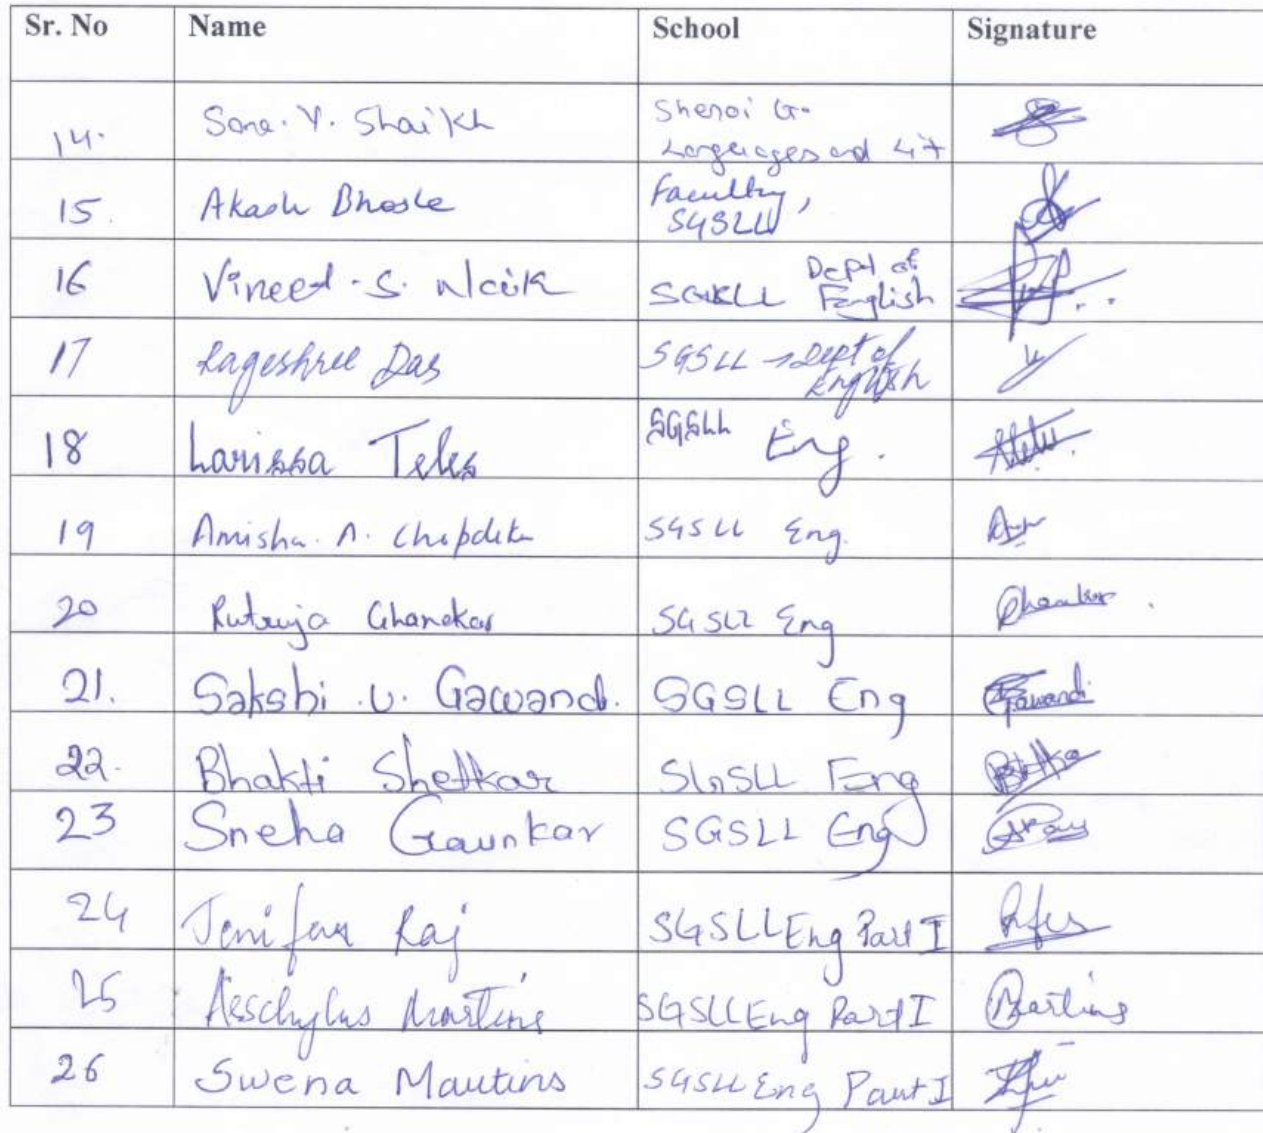 Sr. No Name School Signature
14. Sana. Y. Shaikh Shenoi G.
Languages and Lit
15. Akash Bhosle Faculty,
SGSLL
16 Vineet . S. Naik SGSLL Dept of
English
17 Rageshree Das SGSLL → Dept of
English
18 Larissa Teles SGSLL Eng.
19 Amisha. A. SGSLL Eng.
20 Rutuja Ghanekar SGSLL Eng
21. Sakshi . U. Gawand. SGSLL Eng Gawand
22. Bhakti Shetkar SGSLL Eng
23 Sneha Gaunkar SGSLL Eng
24 Jenifar Raj SGSLL Eng Part I
25 Aeschylus Martins SGSLL Eng Part I Martins
26 Swena Martins SGSLL Eng Part I